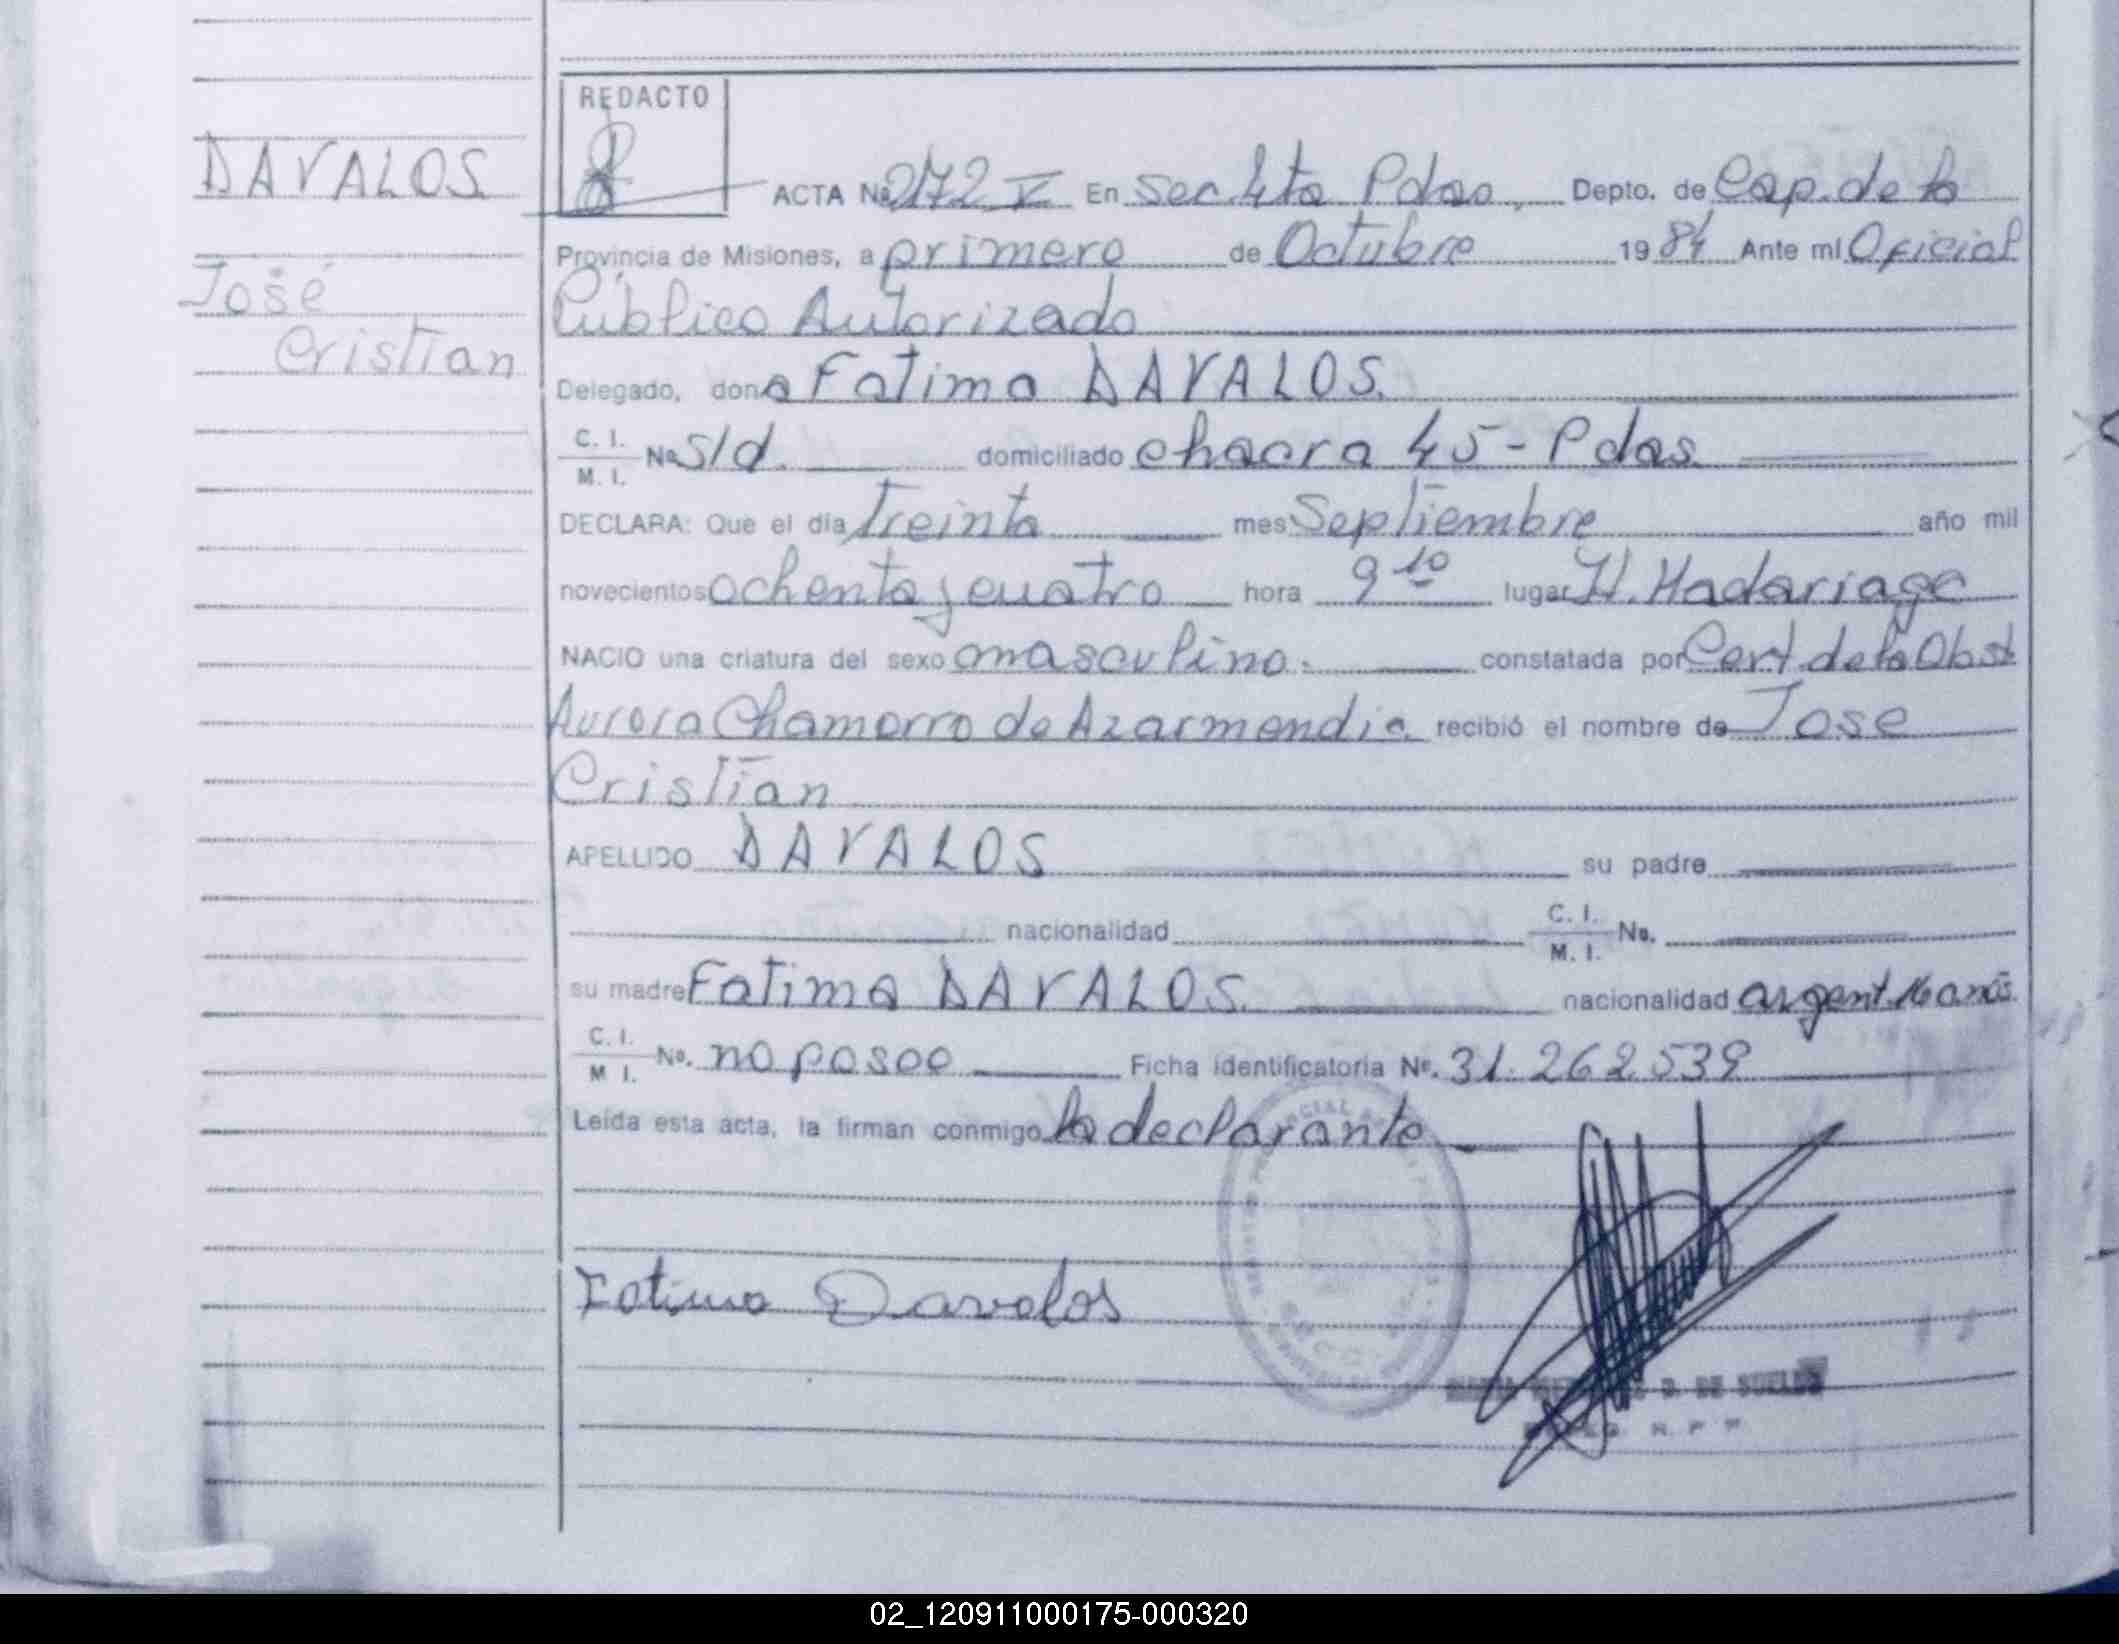 REDACTO
DAVALOS
José
Cristian
ACTA No 272 V En Sec. 4ta Pdas, Depto. de Cap. de la
Provincia de Misiones, a primero de Octubre 1984 Ante mí Oficial
Público Autorizado
Delegado, dona Fatima DAVALOS.
C. I.
M. I.
No s/d. domiciliado chacra 45 - Pdas.
DECLARA: Que el día Treinta mes Septiembre año mil
novecientos ochenta y cuatro hora 9 10 lugar H. Madariaga
NACIO una criatura del sexo masculino. constatada por Cert. de la Obst
Aurora Chamorro de Azarmendia recibió el nombre de Jose
Cristian
APELLIDO DAVALOS su padre
nacionalidad C. I.
M. I. No.
su madre Fatima DAVALOS. nacionalidad argent. 16 anos.
C. I.
M I. No. no posee Ficha identificatoria No. 31.262.539
Leída esta acta, la firman conmigo la declarante
Fatima Davalos
DE SUELDO
02_120911000175-000320